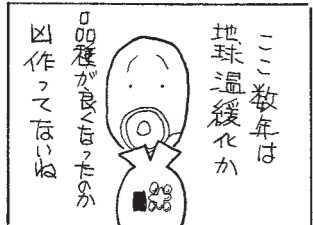 ここ数年は
地球温緩化か
品種が良くなったのか
凶作ってないね